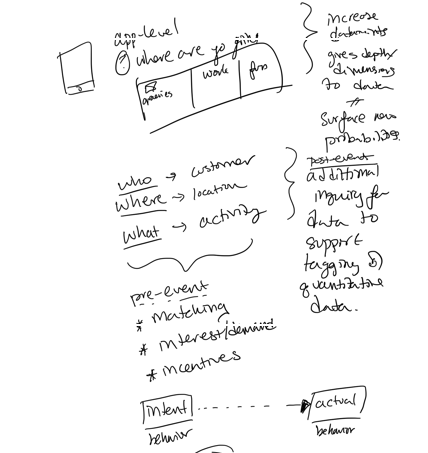 app-level
? where are yo going
groceries work fun
increase
datapoints
gives depth/
dimensions
to data
surface new
probabilities.
who → customer
where → location
what → activity
post-event
additional
inquiry for
data to
support
tagging
quantitative
data.
pre-event
* matching
* interest/demand
* incentives
intent
behavior
actual
behavior